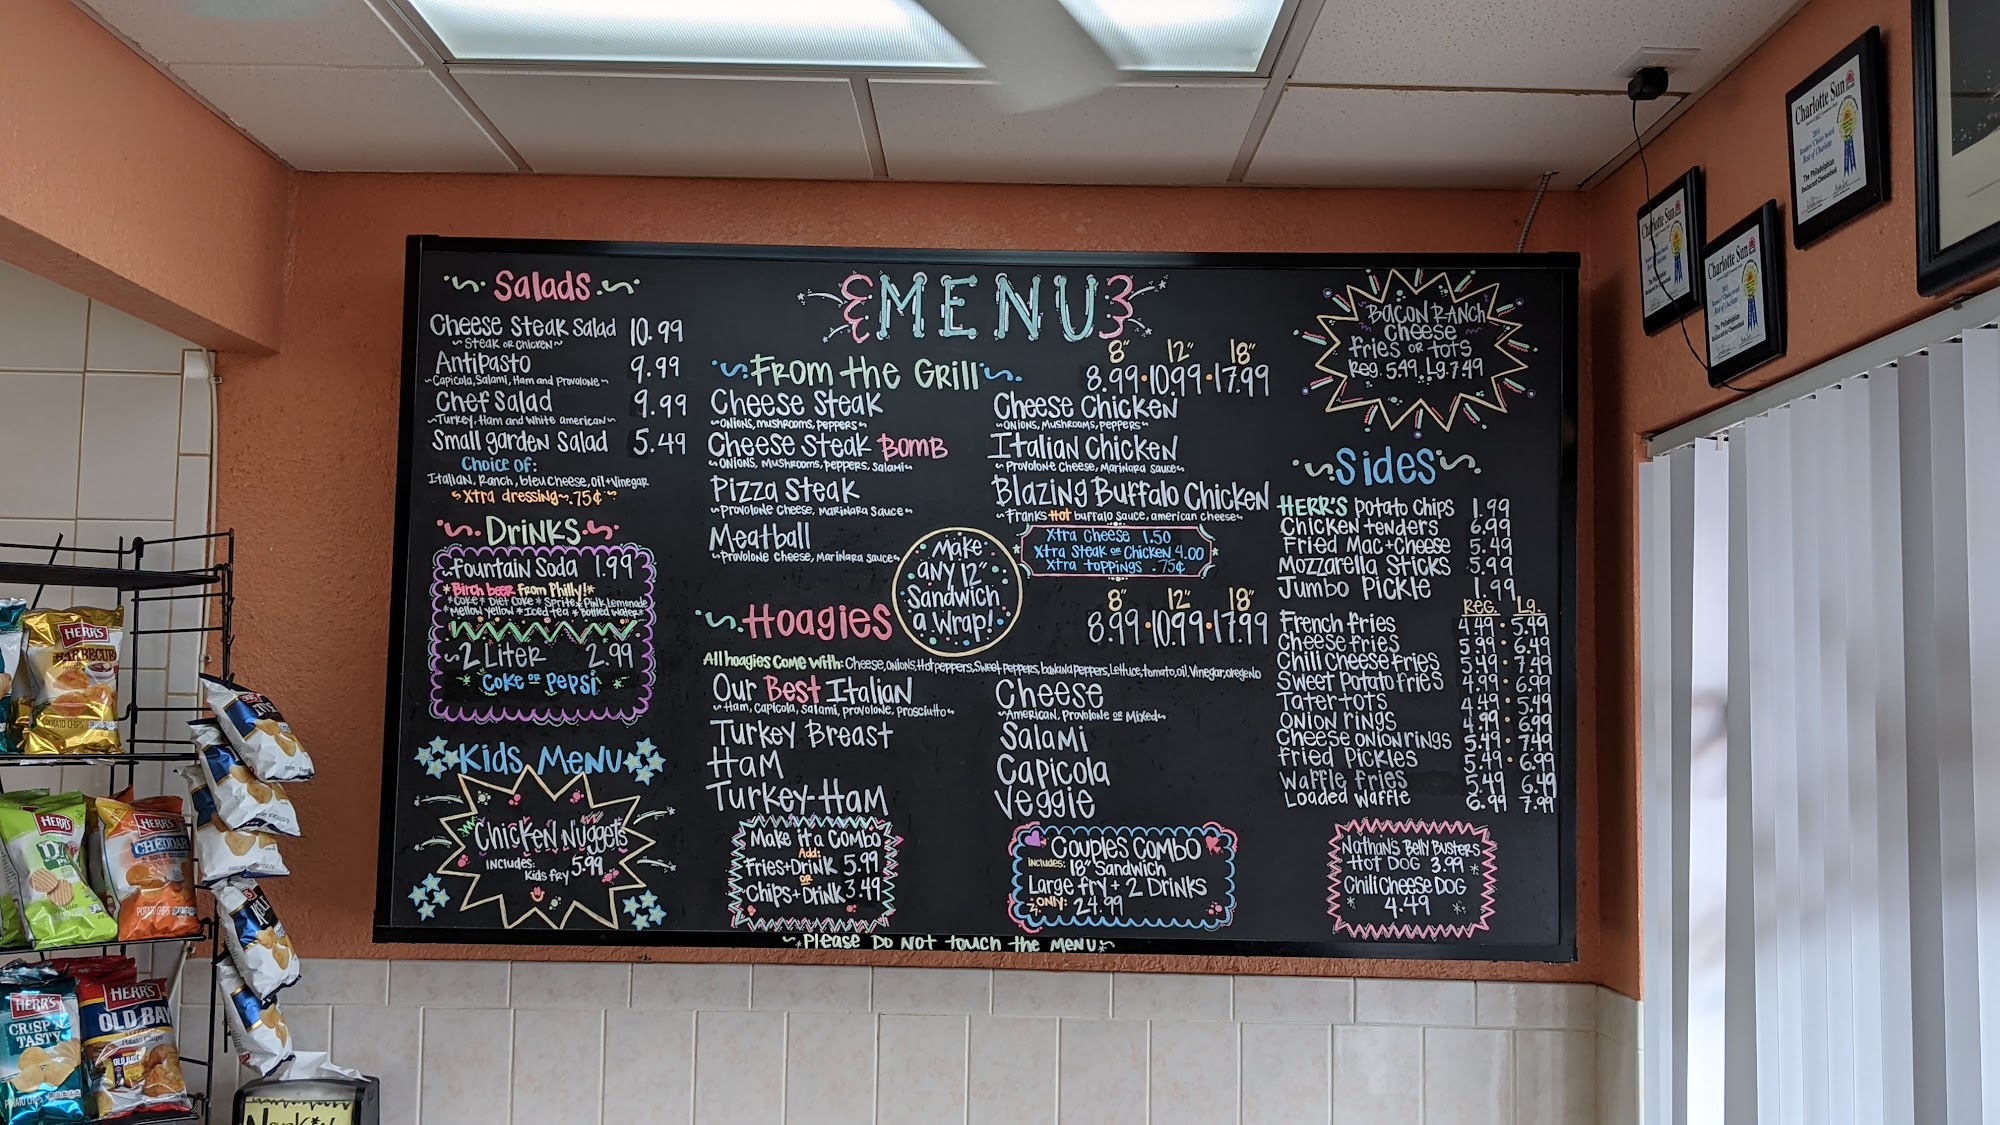 MENU
Salads
Cheese Steak Salad 10.99
~Steak or Chicken~
Antipasto 9.99
~Capicola, Salami, Ham and Provolone~
Chef Salad 9.99
~Turkey, Ham and White american~
Small garden Salad 5.49
Choice of:
Italian, Ranch, bleu cheese, oil+Vinegar
~Xtra dressing~.75¢~
Drinks
fountain Soda 1.99
*Birch beer From Philly!*
*Coke*Diet Coke*Sprite*Pink Lemonade
*Mellow Yellow*Iced tea*Bottled Water*
~2 Liter 2.99
*Coke or Pepsi*
Kids Menu
Chicken Nuggets
includes: Kids fry 5.99
From the Grill
8" 12" 18"
8.99·10.99·17.99
Cheese Steak
~Onions, mushrooms, peppers~
Cheese Steak Bomb
~Onions, Mushrooms, peppers, Salami~
Pizza Steak
~Provolone Cheese, Marinara Sauce~
Meatball
~Provolone Cheese, Marinara Sauce~
Cheese Chicken
~Onions, Mushrooms, Peppers~
Italian Chicken
~Provolone Cheese, Marinara Sauce~
Blazing Buffalo Chicken
~Franks Hot buffalo Sauce, american Cheese~
Xtra Cheese 1.50
Xtra Steak or Chicken 4.00
Xtra toppings .75¢
Make
any 12"
Sandwich
a Wrap!
Hoagies
8" 12" 18"
8.99·10.99·17.99
All hoagies Come With: Cheese, onions, Hot peppers, Sweet peppers, banana Peppers, Lettuce, tomato, oil, Vinegar, oregeno
Our Best Italian
~Ham, Capicola, Salami, provolone, Prosciutto~
Turkey Breast
Ham
Turkey-Ham
Cheese
~American, Provolone or Mixed~
Salami
Capicola
Veggie
Make it a Combo
Add:
Fries+Drink 5.99
or
Chips+Drink 3.49
Couples Combo
includes: 18" Sandwich
Large fry + 2 Drinks
only: 24.99
Bacon Ranch
Cheese
fries or tots
Reg. 5.49 Lg. 7.49
Sides
HERR'S Potato Chips 1.99
Chicken tenders 6.99
Fried Mac+Cheese 5.49
Mozzarella Sticks 5.99
Jumbo Pickle 1.99
Reg. Lg.
French fries 4.49·5.49
Cheese fries 5.99·6.49
Chili Cheese fries 5.49·7.49
Sweet Potato fries 4.99·6.99
Tater tots 4.49·5.49
Onion rings 4.99·6.99
Cheese Onion rings 5.49·7.49
fried Pickles 5.49·6.99
Waffle fries 5.49 6.49
Loaded Waffle 6.99 7.99
Nathan's Belly Busters
Hot DOG 3.99
Chili Cheese DOG
4.49
~Please Do Not touch the Menu~
Charlotte Sun
2014
Readers' Choice Award
Best of Charlotte
The Philadelphian
Restaurant Cheesesteak
Charlotte Sun
Charlotte Sun
HERR'S
BARBECUE
POTATO CHIPS
HERR'S
HERR'S
CHEDDAR
& SOUR CREAM
POTATO CHIPS
HERR'S
CRISP N'
TASTY
POTATO CHIPS
HERR'S
OLD BAY
Potato Chips
OLD BAY